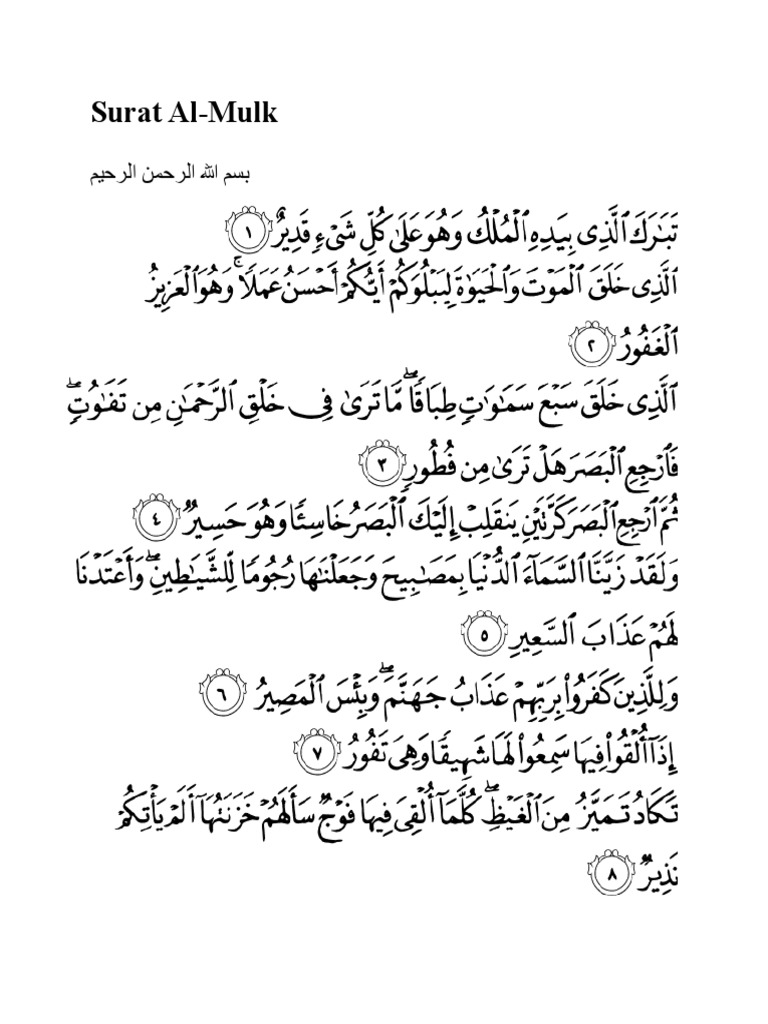 Surat Al-Mulk
بسم الله الرحمن الرحيم
تَبَـٰرَكَ ٱلَّذِى بِيَدِهِ ٱلْمُلْكُ وَهُوَ عَلَىٰ كُلِّ شَىْءٍۢ قَدِيرٌ ١
ٱلَّذِى خَلَقَ ٱلْمَوْتَ وَٱلْحَيَوٰةَ لِيَبْلُوَكُمْ أَيُّكُمْ أَحْسَنُ عَمَلًۭا ۚ وَهُوَ ٱلْعَزِيزُ
ٱلْغَفُورُ ٢
ٱلَّذِى خَلَقَ سَبْعَ سَمَـٰوَٰتٍۢ طِبَاقًۭا ۖ مَّا تَرَىٰ فِى خَلْقِ ٱلرَّحْمَـٰنِ مِن تَفَـٰوُتٍۢ ۖ
فَٱرْجِعِ ٱلْبَصَرَ هَلْ تَرَىٰ مِن فُطُورٍۢ ٣
ثُمَّ ٱرْجِعِ ٱلْبَصَرَ كَرَّتَيْنِ يَنقَلِبْ إِلَيْكَ ٱلْبَصَرُ خَاسِئًۭا وَهُوَ حَسِيرٌۭ ٤
وَلَقَدْ زَيَّنَّا ٱلسَّمَآءَ ٱلدُّنْيَا بِمَصَـٰبِيحَ وَجَعَلْنَـٰهَا رُجُومًۭا لِّلشَّيَـٰطِينِ ۖ وَأَعْتَدْنَا
لَهُمْ عَذَابَ ٱلسَّعِيرِ ٥
وَلِلَّذِينَ كَفَرُوا۟ بِرَبِّهِمْ عَذَابُ جَهَنَّمَ ۖ وَبِئْسَ ٱلْمَصِيرُ ٦
إِذَآ أُلْقُوا۟ فِيهَا سَمِعُوا۟ لَهَا شَهِيقًۭا وَهِىَ تَفُورُ ٧
تَكَادُ تَمَيَّزُ مِنَ ٱلْغَيْظِ ۖ كُلَّمَآ أُلْقِىَ فِيهَا فَوْجٌۭ سَأَلَهُمْ خَزَنَتُهَآ أَلَمْ يَأْتِكُمْ
نَذِيرٌۭ ٨